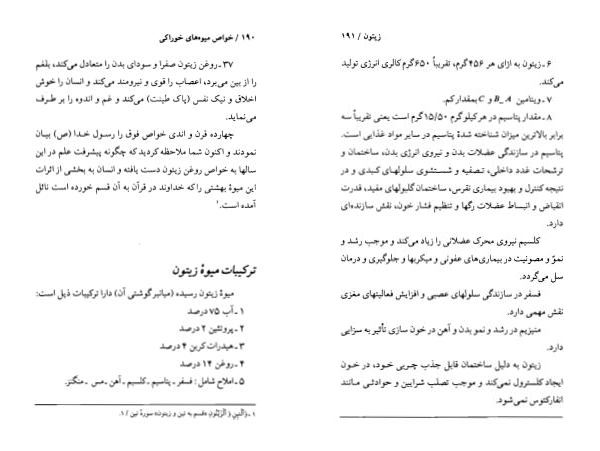 ۱۹۰ / خواص میوه‌های خوراکی
۳۷ـ روغن زیتون صفرا و سودای بدن را متعادل می‌کند، بلغم
را از بین می‌برد، اعصاب را قوی و نیرومند می‌کند و انسان را خوش
اخلاق و نیک نفس (پاک طینت) می‌کند و غم و اندوه را بر طرف
می‌نماید.
چهارده قرن و اندی خواص فوق را رسول خدا (ص) بیان
نمودند و اکنون شما ملاحظه کردید که چگونه پیشرفت علم در این
سالها به خواص روغن زیتون دست یافته و انسان به بخشی از اثرات
این میوهٔ بهشتی را که خداوند در قرآن به آن قسم خورده است نائل
آمده است.۱
ترکیبات میوهٔ زیتون
میوهٔ زیتون رسیده (میانبر گوشتی آن) دارا ترکیبات ذیل است:
۱ـ آب ۷۵ درصد
۲ـ پروتئین ۲ درصد
۳ـ هیدرات کربن ۴ درصد
۴ـ روغن ۱۴ درصد
۵ـ املاح شامل: فسفر ـ پتاسیم ـ کلسیم ـ آهن ـ مس ـ منگنز.
۱ـ وَالتّینِ وَ الزَّیْتُونِ «قسم به تین و زیتون» سورهٔ تین / ۱.
زیتون / ۱۹۱
۶ـ زیتون به ازای هر ۴۵۶ گرم، تقریباً ۶۵۰ گرم کالری انرژی تولید
می‌کند.
۷ـ ویتامین A ـ B و C بمقدار کم.
۸ـ مقدار پتاسیم در هر کیلو گرم ۱۵/۵۰ گرم است یعنی تقریباً سه
برابر بالاترین میزان شناخته شدهٔ پتاسیم در سایر مواد غذایی است.
پتاسیم در سازندگی عضلات بدن و نیروی انرژی بدن، ساختمان و
ترشحات غدد داخلی، تصفیه و شستشوی سلولهای کبدی و در
نتیجه کنترل و بهبود بیماری نقرس، ساختمان گلبولهای مفید، قدرت
انقباض و انبساط عضلات رگها و تنظیم فشار خون، نقش سازنده‌ای
دارد.
کلسیم نیروی محرک عضلانی را زیاد می‌کند و موجب رشد و
نموّ و مصونیت در بیماری‌های عفونی و میکربها و جلوگیری و درمان
سل می‌گردد.
فسفر در سازندگی سلولهای عصبی و افزایش فعالیتهای مغزی
نقش مهمی دارد.
منیزیم در رشد و نمو بدن و آهن در خون سازی تأثیر به سزایی
دارد.
زیتون به دلیل ساختمان قابل جذب چربی خود، در خون
ایجاد کلسترول نمی‌کند و موجب تصلب شرایین و حوادثی مانند
انفارکتوس نمی‌شود.